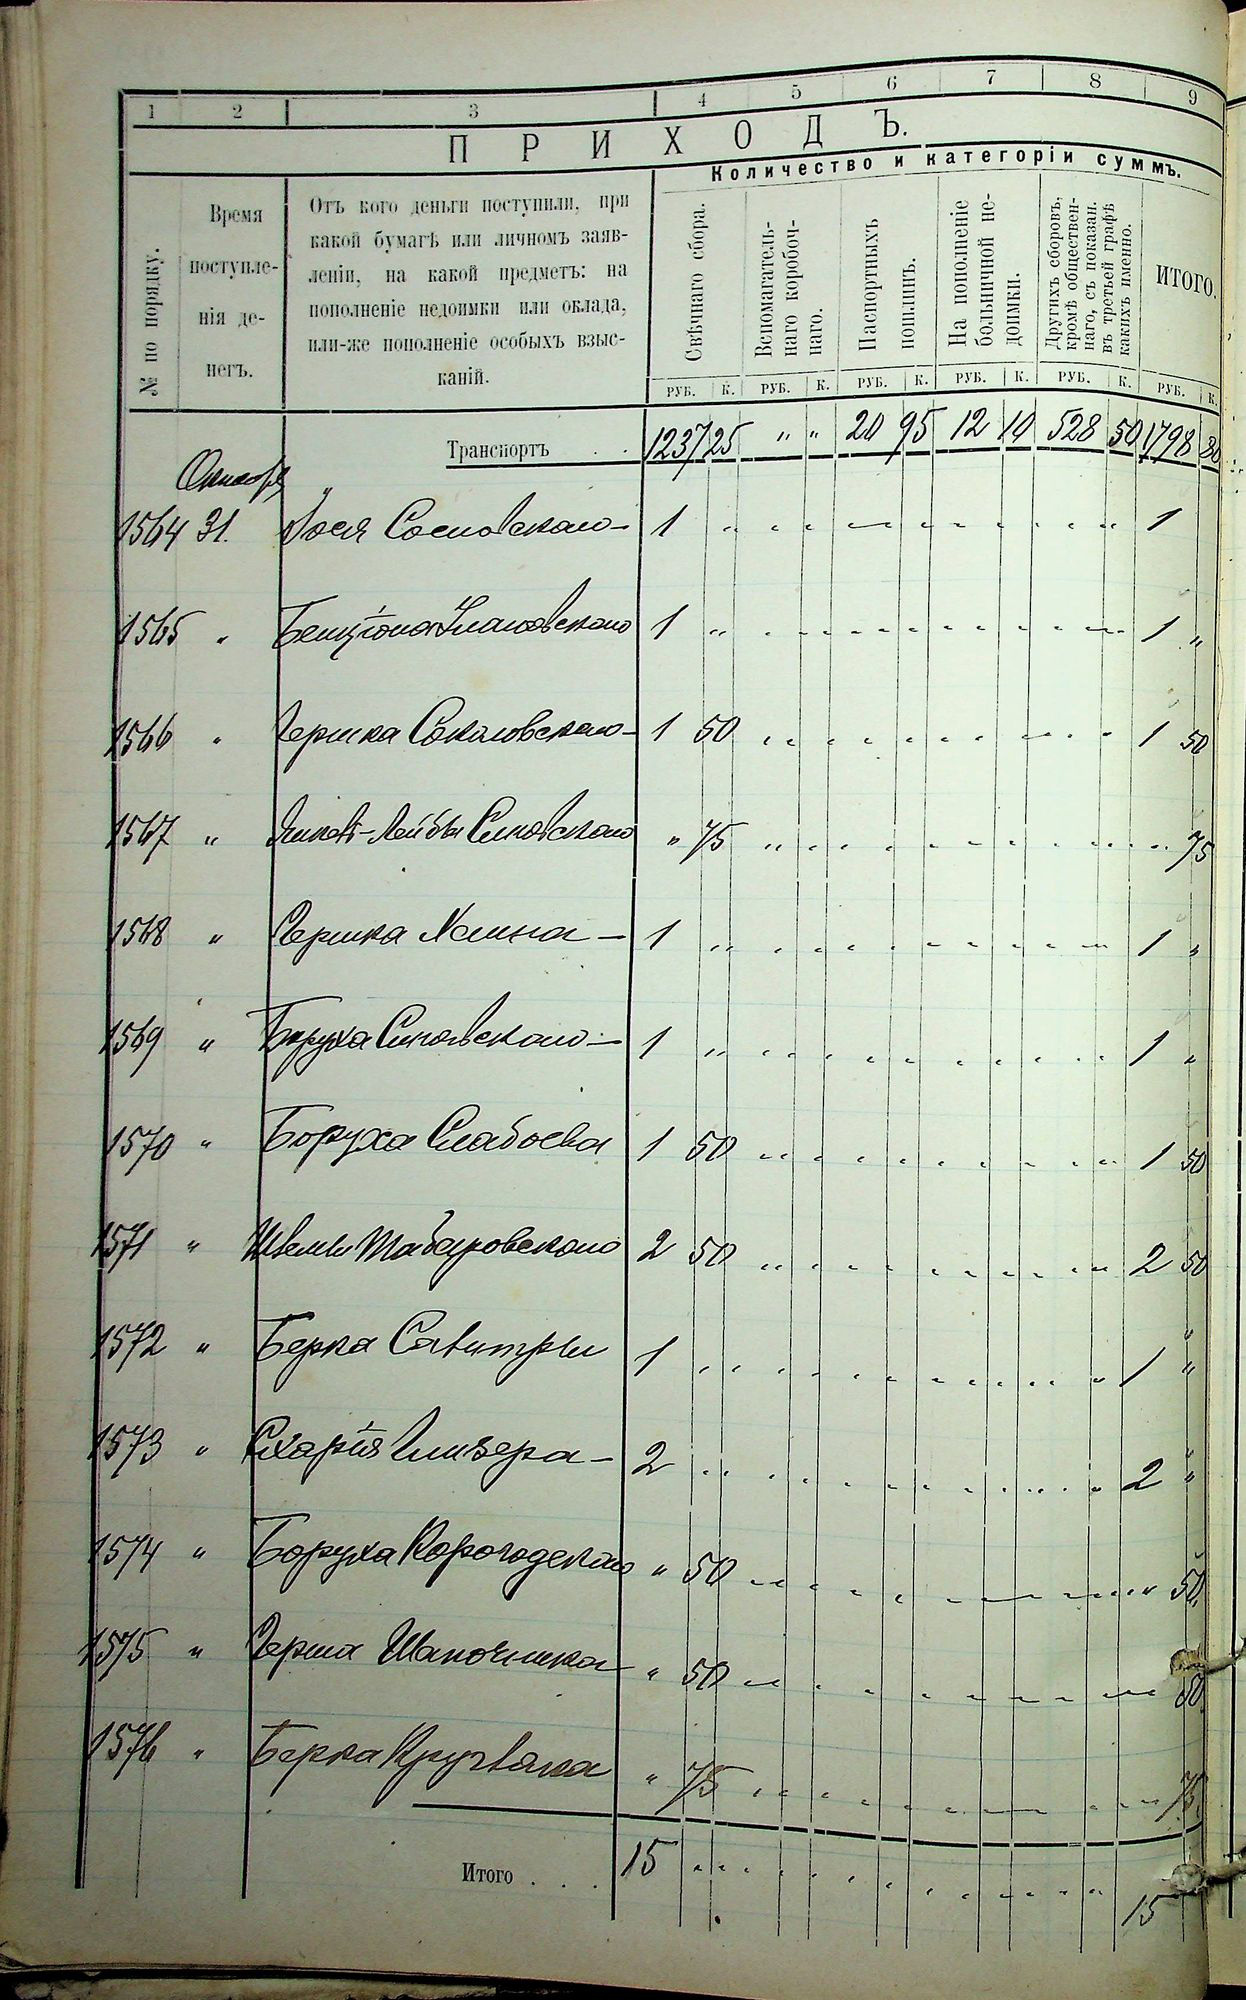 1 2 3 4 5 6 7 8 9
ПРИХОДЪ.
Количество и категоріи суммъ.
№ по порядку.
Время
поступле-
нія де-
негъ.
Отъ кого деньги поступили, при
какой бумагѣ или личномъ заяв-
леніи, на какой предметъ: на
пополненіе недоимки или оклада,
или-же пополненіе особыхъ взыс-
каній.
Свѣчнаго сбора.
Вспомагатель-
наго коробоч-
наго.
Паспортныхъ
пошлинъ.
На пополненіе
больничной не-
доимки.
Другихъ сборовъ,
кромѣ обществен-
наго, съ показан.
въ третьей графѣ
какихъ именно.
ИТОГО.
РУБ. К. РУБ. К. РУБ. К. РУБ. К. РУБ. К. РУБ. К.
Транспортъ . . 1237 25 " " 20 95 12 10 528 50 1798 80
Октября
1564 31. Іося Сосновскаго 1 " 1
1565 " Бенціона 1 " 1 "
1566 " Гершка Соколовскаго 1 50 1 50
1567 " Лейбы " 75 75
1568 " Гершка Хаина 1 " 1 "
1569 " Боруха 1 " 1 "
1570 " Боруха Слабоева 1 50 1 50
1571 " Табачровскаго 2 50 2 50
1572 " Берка 1 1 "
1573 " 2 2 "
1574 " Боруха Корогодскаго " 50 " 50
1575 " Герша Шапочника " 50 50
1576 " Берка " 75 75
Итого . . . 15 15